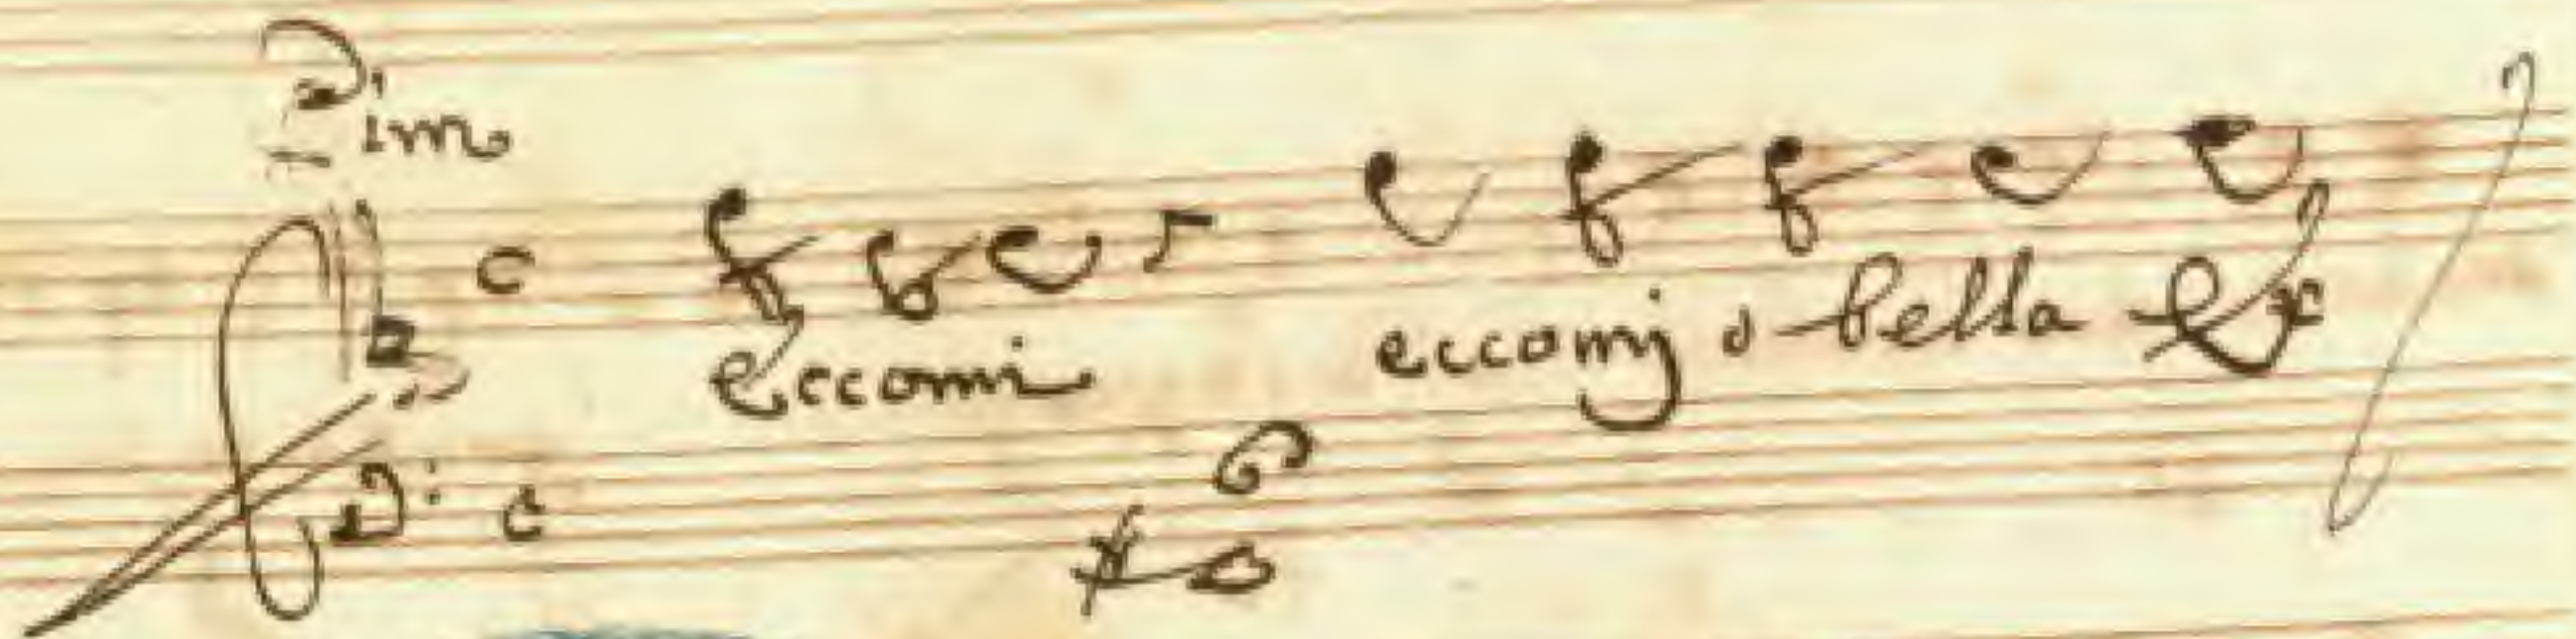 Dim
Eccomi eccomj o bella &c
6